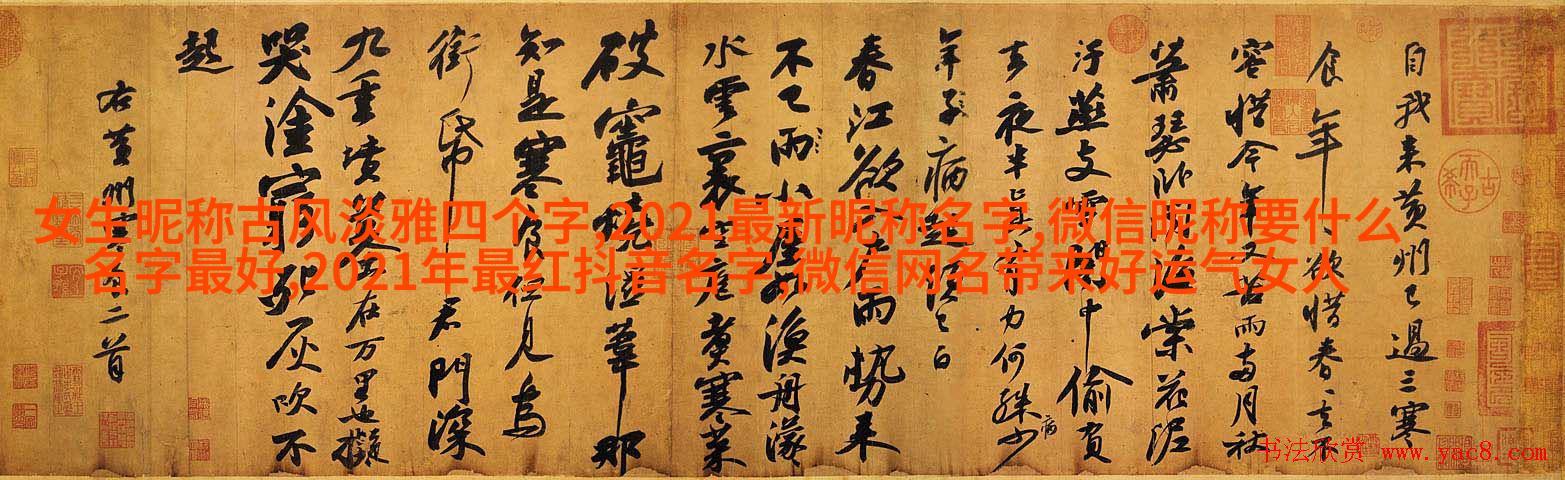 自我来黄州已過三寒
食年、欲惜春、去不
容惜今年又苦雨兩月秋
蕭瑟卧聞海棠花泥
汙燕支雪闇中偷負
去夜半真有力何殊少
病
年子病起須已白
春江欲入戶雨勢来
不已雨小屋如漁舟濛、
水雲裏空庖煮寒菜
破竈燒濕葦那
知是寒食但見烏
銜帋君門深
九重墳墓在万里也擬
哭塗窮死灰吹不
起
右黄州寒食二首
女生昵称古风淡雅四个字,2021最新昵称名字,微信昵称要什么
名字最好,2021年最红抖音名字,微信网名带来好运气女人
书法欣赏 www.yac8.com